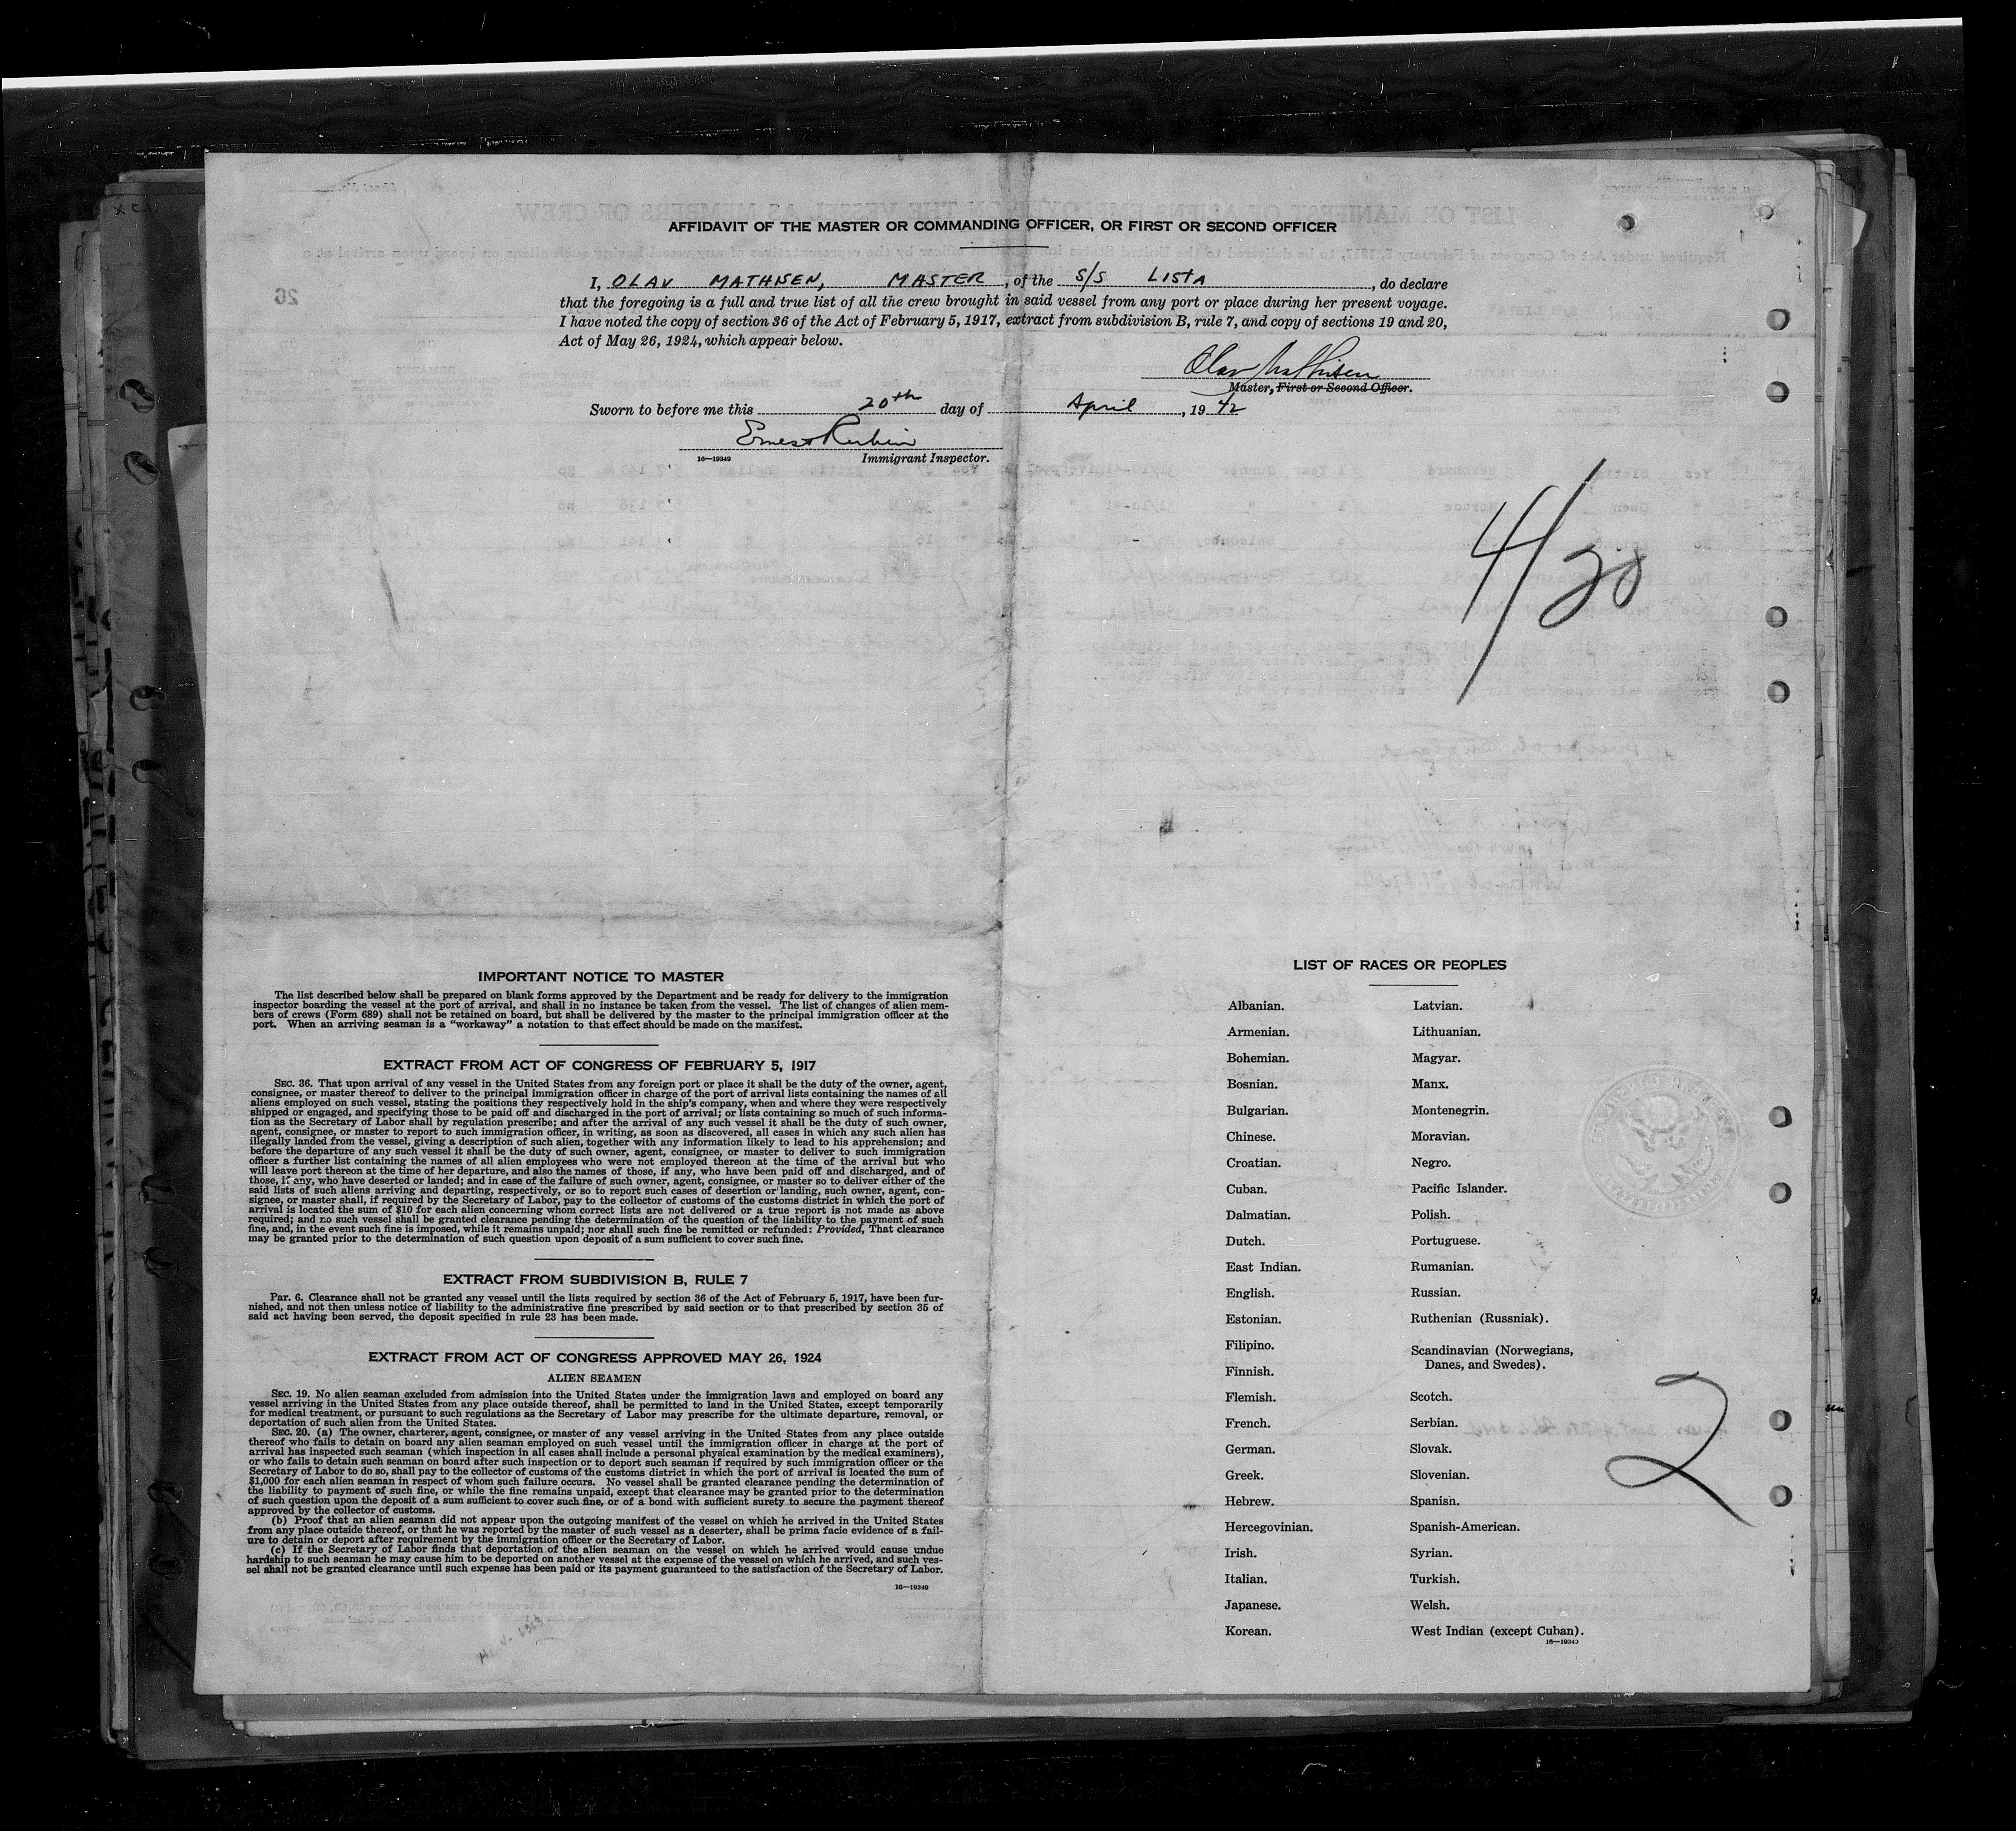 AFFIDAVIT OF THE MASTER OR COMMANDING OFFICER, OR FIRST OR SECOND OFFICER
I, OLAV MATHISEN, MASTER, of the S/S LISTA, do declare
that the foregoing is a full and true list of all the crew brought in said vessel from any port or place during her present voyage.
I have noted the copy of section 36 of the Act of February 5, 1917, extract from subdivision B, rule 7, and copy of sections 19 and 20,
Act of May 26, 1924, which appear below.
Olav Mathisen
Master, First or Second Officer.
Sworn to before me this 20th day of April, 19 42
Ernest Rubin
16—19349 Immigrant Inspector.
4/20
IMPORTANT NOTICE TO MASTER
The list described below shall be prepared on blank forms approved by the Department and be ready for delivery to the immigration
inspector boarding the vessel at the port of arrival, and shall in no instance be taken from the vessel. The list of changes of alien mem-
bers of crews (Form 689) shall not be retained on board, but shall be delivered by the master to the principal immigration officer at the
port. When an arriving seaman is a "workaway" a notation to that effect should be made on the manifest.
EXTRACT FROM ACT OF CONGRESS OF FEBRUARY 5, 1917
SEC. 36. That upon arrival of any vessel in the United States from any foreign port or place it shall be the duty of the owner, agent,
consignee, or master thereof to deliver to the principal immigration officer in charge of the port of arrival lists containing the names of all
aliens employed on such vessel, stating the positions they respectively hold in the ship's company, when and where they were respectively
shipped or engaged, and specifying those to be paid off and discharged in the port of arrival; or lists containing so much of such informa-
tion as the Secretary of Labor shall by regulation prescribe; and after the arrival of any such vessel it shall be the duty of such owner,
agent, consignee, or master to report to such immigration officer, in writing, as soon as discovered, all cases in which any such alien has
illegally landed from the vessel, giving a description of such alien, together with any information likely to lead to his apprehension; and
before the departure of any such vessel it shall be the duty of such owner, agent, consignee, or master to deliver to such immigration
officer a further list containing the names of all alien employees who were not employed thereon at the time of the arrival but who
will leave port thereon at the time of her departure, and also the names of those, if any, who have been paid off and discharged, and of
those, if any, who have deserted or landed; and in case of the failure of such owner, agent, consignee, or master so to deliver either of the
said lists of such aliens arriving and departing, respectively, or so to report such cases of desertion or landing, such owner, agent, con-
signee, or master shall, if required by the Secretary of Labor, pay to the collector of customs of the customs district in which the port of
arrival is located the sum of $10 for each alien concerning whom correct lists are not delivered or a true report is not made as above
required; and no such vessel shall be granted clearance pending the determination of the question of the liability to the payment of such
fine, and, in the event such fine is imposed, while it remains unpaid; nor shall such fine be remitted or refunded: Provided, That clearance
may be granted prior to the determination of such question upon deposit of a sum sufficient to cover such fine.
EXTRACT FROM SUBDIVISION B, RULE 7
Par. 6. Clearance shall not be granted any vessel until the lists required by section 36 of the Act of February 5, 1917, have been fur-
nished, and not then unless notice of liability to the administrative fine prescribed by said section or to that prescribed by section 35 of
said act having been served, the deposit specified in rule 23 has been made.
EXTRACT FROM ACT OF CONGRESS APPROVED MAY 26, 1924
ALIEN SEAMEN
SEC. 19. No alien seaman excluded from admission into the United States under the immigration laws and employed on board any
vessel arriving in the United States from any place outside thereof, shall be permitted to land in the United States, except temporarily
for medical treatment, or pursuant to such regulations as the Secretary of Labor may prescribe for the ultimate departure, removal, or
deportation of such alien from the United States.
SEC. 20. (a) The owner, charterer, agent, consignee, or master of any vessel arriving in the United States from any place outside
thereof who fails to detain on board any alien seaman employed on such vessel until the immigration officer in charge at the port of
arrival has inspected such seaman (which inspection in all cases shall include a personal physical examination by the medical examiners),
or who fails to detain such seaman on board after such inspection or to deport such seaman if required by such immigration officer or the
Secretary of Labor to do so, shall pay to the collector of customs of the customs district in which the port of arrival is located the sum of
$1,000 for each alien seaman in respect of whom such failure occurs. No vessel shall be granted clearance pending the determination of
the liability to payment of such fine, or while the fine remains unpaid, except that clearance may be granted prior to the determination
of such question upon the deposit of a sum sufficient to cover such fine, or of a bond with sufficient surety to secure the payment thereof
approved by the collector of customs.
(b) Proof that an alien seaman did not appear upon the outgoing manifest of the vessel on which he arrived in the United States
from any place outside thereof, or that he was reported by the master of such vessel as a deserter, shall be prima facie evidence of a fail-
ure to detain or deport after requirement by the immigration officer or the Secretary of Labor.
(c) If the Secretary of Labor finds that deportation of the alien seaman on the vessel on which he arrived would cause undue
hardship to such seaman he may cause him to be deported on another vessel at the expense of the vessel on which he arrived, and such ves-
sel shall not be granted clearance until such expense has been paid or its payment guaranteed to the satisfaction of the Secretary of Labor.
16—19349
LIST OF RACES OR PEOPLES
Albanian.
Armenian.
Bohemian.
Bosnian.
Bulgarian.
Chinese.
Croatian.
Cuban.
Dalmatian.
Dutch.
East Indian.
English.
Estonian.
Filipino.
Finnish.
Flemish.
French.
German.
Greek.
Hebrew.
Hercegovinian.
Irish.
Italian.
Japanese.
Korean.
Latvian.
Lithuanian.
Magyar.
Manx.
Montenegrin.
Moravian.
Negro.
Pacific Islander.
Polish.
Portuguese.
Rumanian.
Russian.
Ruthenian (Russniak).
Scandinavian (Norwegians,
Danes, and Swedes).
Scotch.
Serbian.
Slovak.
Slovenian.
Spanish.
Spanish-American.
Syrian.
Turkish.
Welsh.
West Indian (except Cuban).
16—19349
2